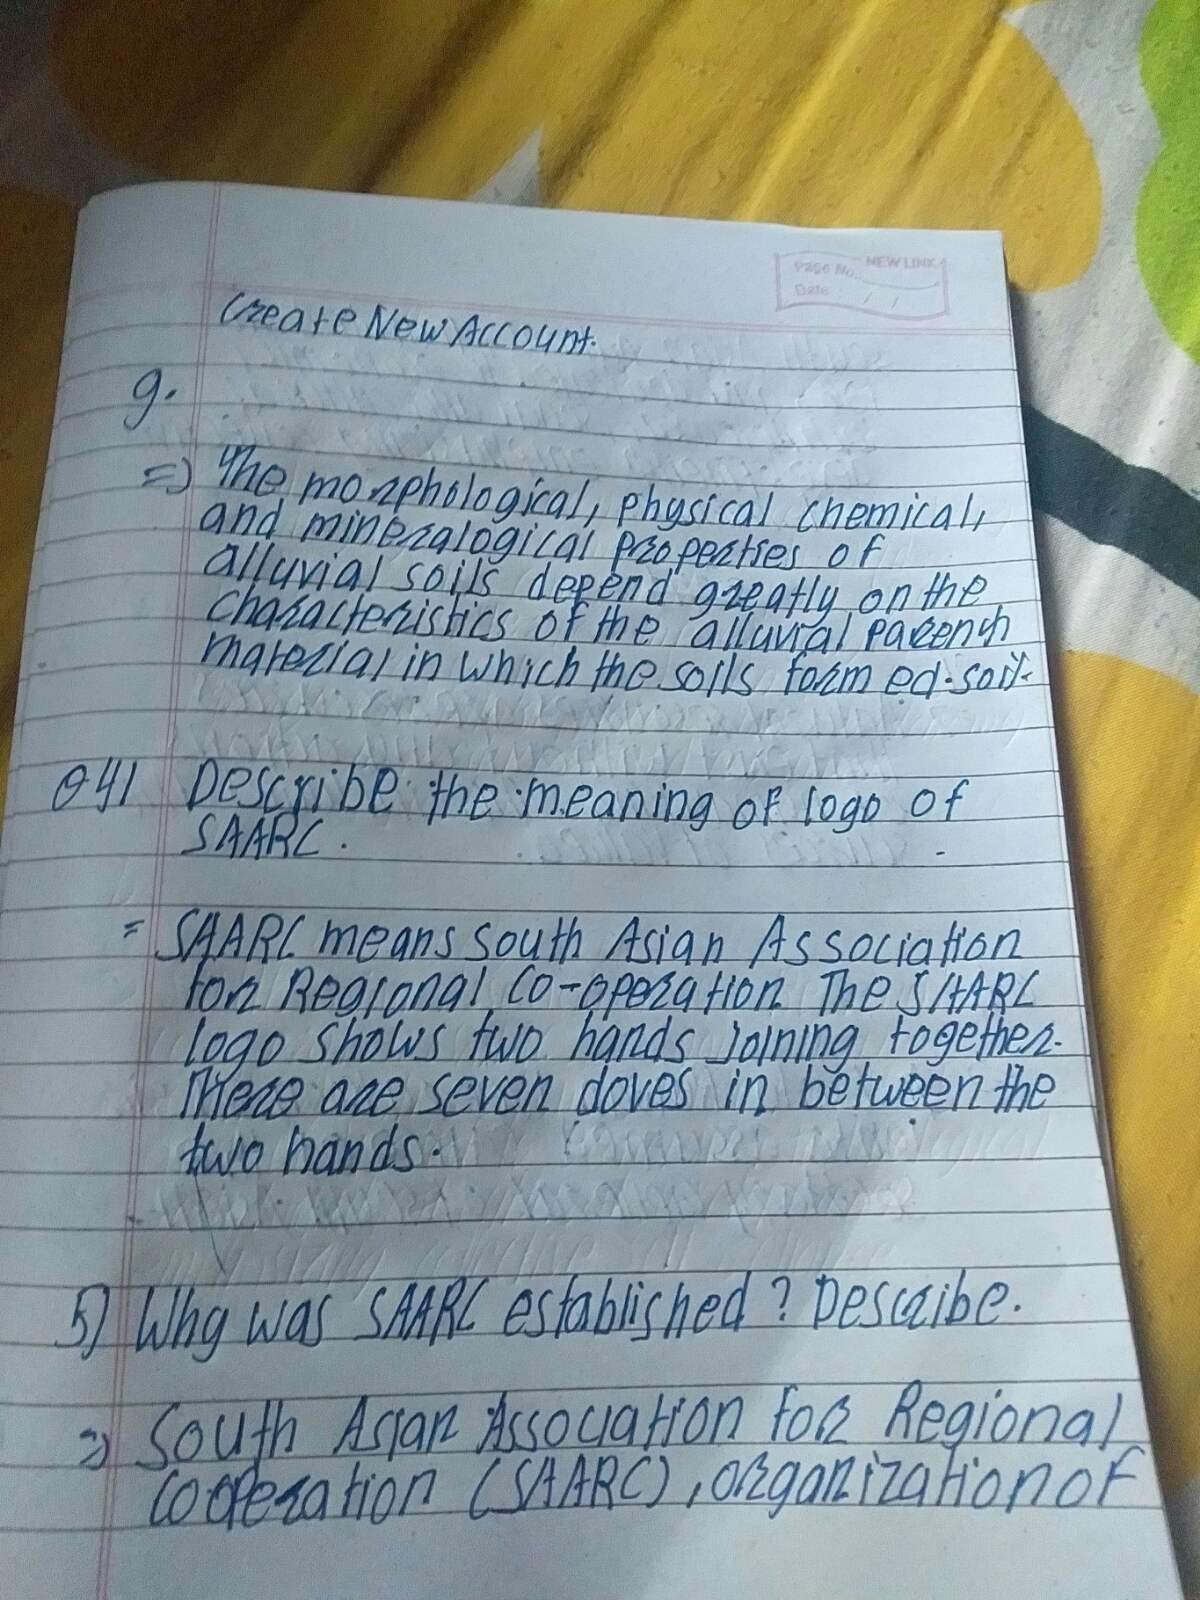 NEW LINK
Page No.
Date / /
Create New Account.
g.
=> The morphological, physical chemical,
and mineralogical properties of
alluvial soils depend greatly on the
characteristics of the alluvial
material in which the soils form ed. soil.
Q41 Describe the meaning of logo of
SAARC.
= SAARC means south Asian Association
for Regional Co-operation. The SAARC
logo shows two hands joining together.
There are seven doves in between the
two hands.
5) Why was SAARC established? Describe.
=> South Asian Association for Regional
cooperation (SAARC), organization of